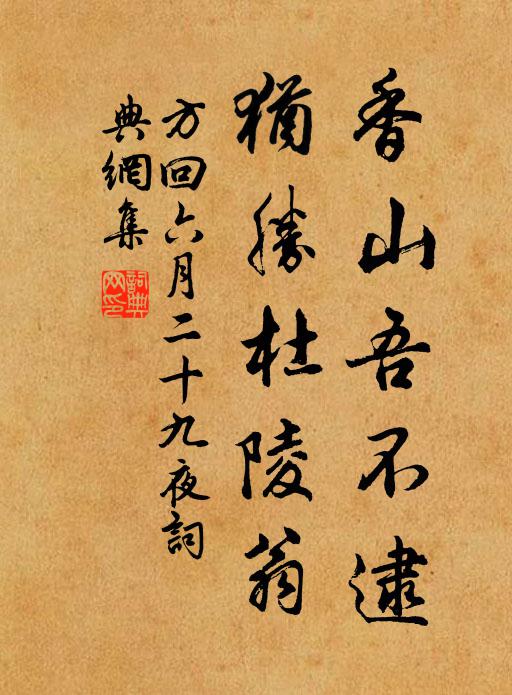 香山吾不逮
猶勝杜陵翁
方回六月二十九夜詞
典網集
詞典
网印